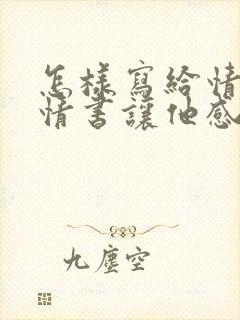 怎樣寫給情
情書讓他感
九塵空